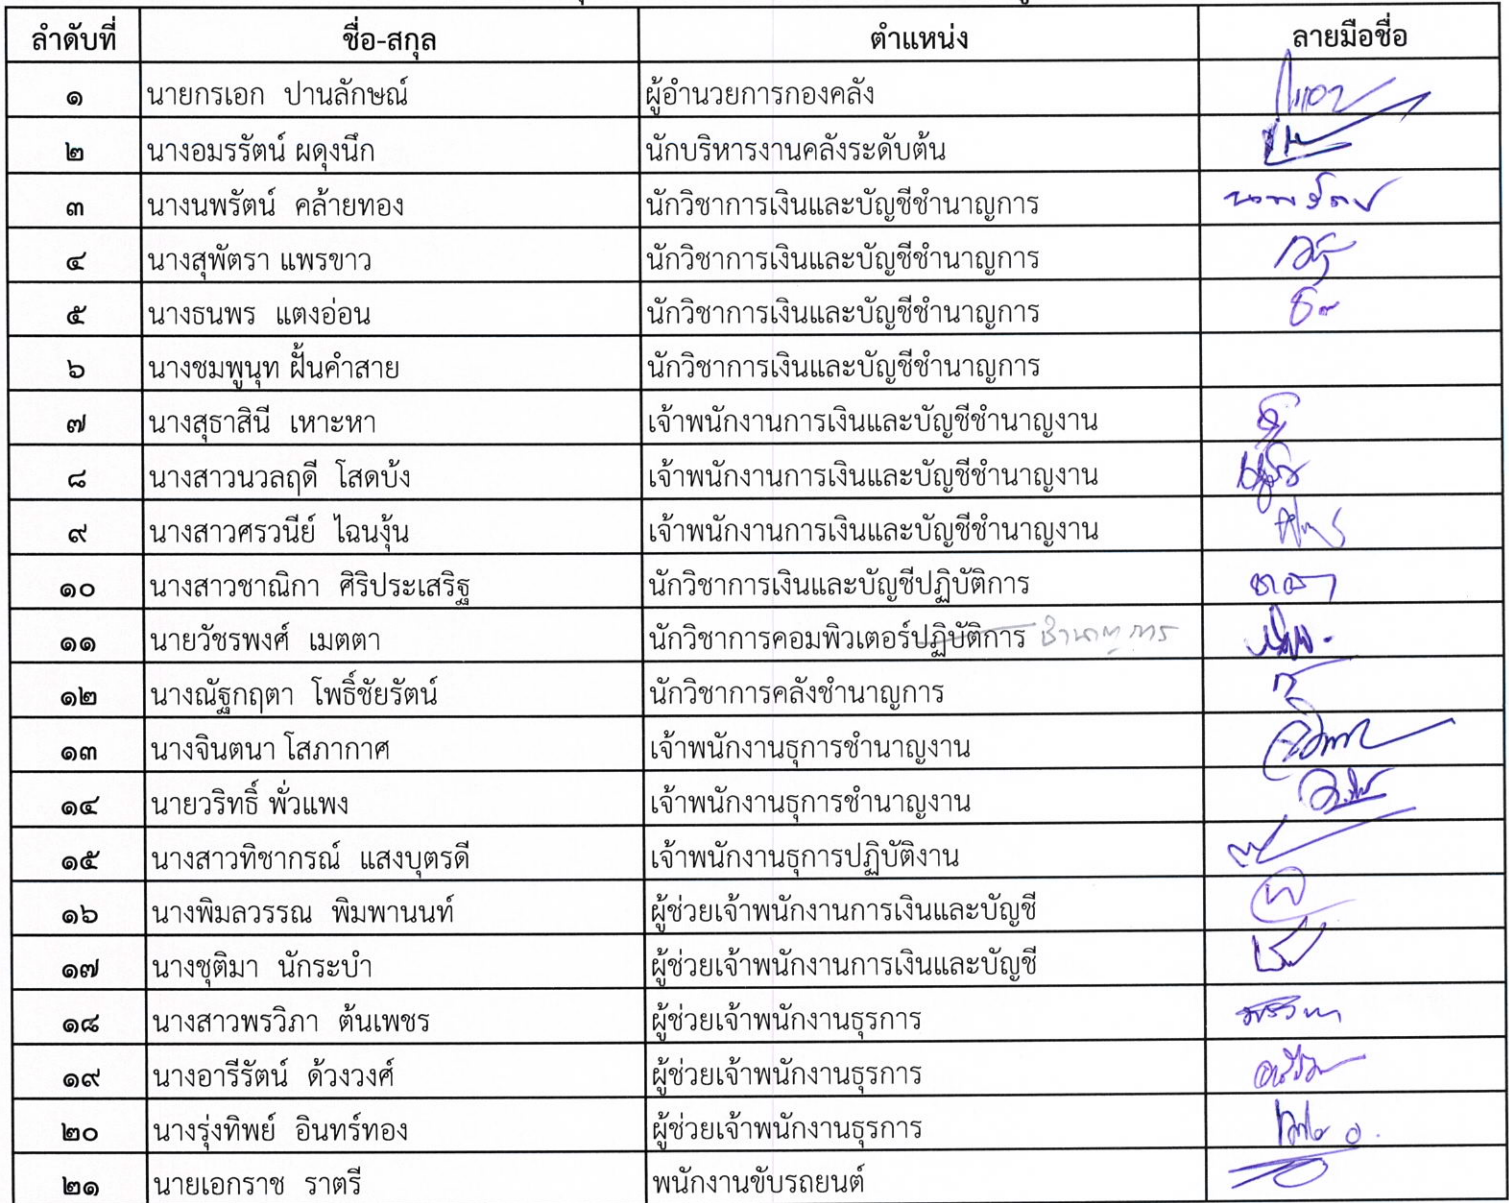 ลำดับที่ ชื่อ-สกุล ตำแหน่ง ลายมือชื่อ
๑ นายกรเอก ปานลักษณ์ ผู้อำนวยการกองคลัง
๒ นางอมรรัตน์ ผดุงนึก นักบริหารงานคลังระดับต้น
๓ นางนพรัตน์ คล้ายทอง นักวิชาการเงินและบัญชีชำนาญการ นพรัตน์
๔ นางสุพัตรา แพรขาว นักวิชาการเงินและบัญชีชำนาญการ
๕ นางธนพร แตงอ่อน นักวิชาการเงินและบัญชีชำนาญการ
๖ นางชมพูนุท ฝั้นคำสาย นักวิชาการเงินและบัญชีชำนาญการ
๗ นางสุธาสินี เหาะหา เจ้าพนักงานการเงินและบัญชีชำนาญงาน
๘ นางสาวนวลฤดี โสดบ้ง เจ้าพนักงานการเงินและบัญชีชำนาญงาน
๙ นางสาวศรวนีย์ ไฉนงุ้น เจ้าพนักงานการเงินและบัญชีชำนาญงาน
๑๐ นางสาวชาณิกา ศิริประเสริฐ นักวิชาการเงินและบัญชีปฏิบัติการ
๑๑ นายวัชรพงศ์ เมตตา นักวิชาการคอมพิวเตอร์ปฏิบัติการ ชำนาญการ
๑๒ นางณัฐกฤตา โพธิ์ชัยรัตน์ นักวิชาการคลังชำนาญการ
๑๓ นางจินตนา โสภากาศ เจ้าพนักงานธุการชำนาญงาน
๑๔ นายวริทธิ์ พั่วแพง เจ้าพนักงานธุการชำนาญงาน
๑๕ นางสาวทิชากรณ์ แสงบุตรดี เจ้าพนักงานธุการปฏิบัติงาน
๑๖ นางพิมลวรรณ พิมพานนท์ ผู้ช่วยเจ้าพนักงานการเงินและบัญชี
๑๗ นางชุติมา นักระบำ ผู้ช่วยเจ้าพนักงานการเงินและบัญชี
๑๘ นางสาวพรวิภา ต้นเพชร ผู้ช่วยเจ้าพนักงานธุรการ พรวิภา
๑๙ นางอารีรัตน์ ด้วงวงศ์ ผู้ช่วยเจ้าพนักงานธุรการ
๒๐ นางรุ่งทิพย์ อินทร์ทอง ผู้ช่วยเจ้าพนักงานธุรการ
๒๑ นายเอกราช ราตรี พนักงานขับรถยนต์